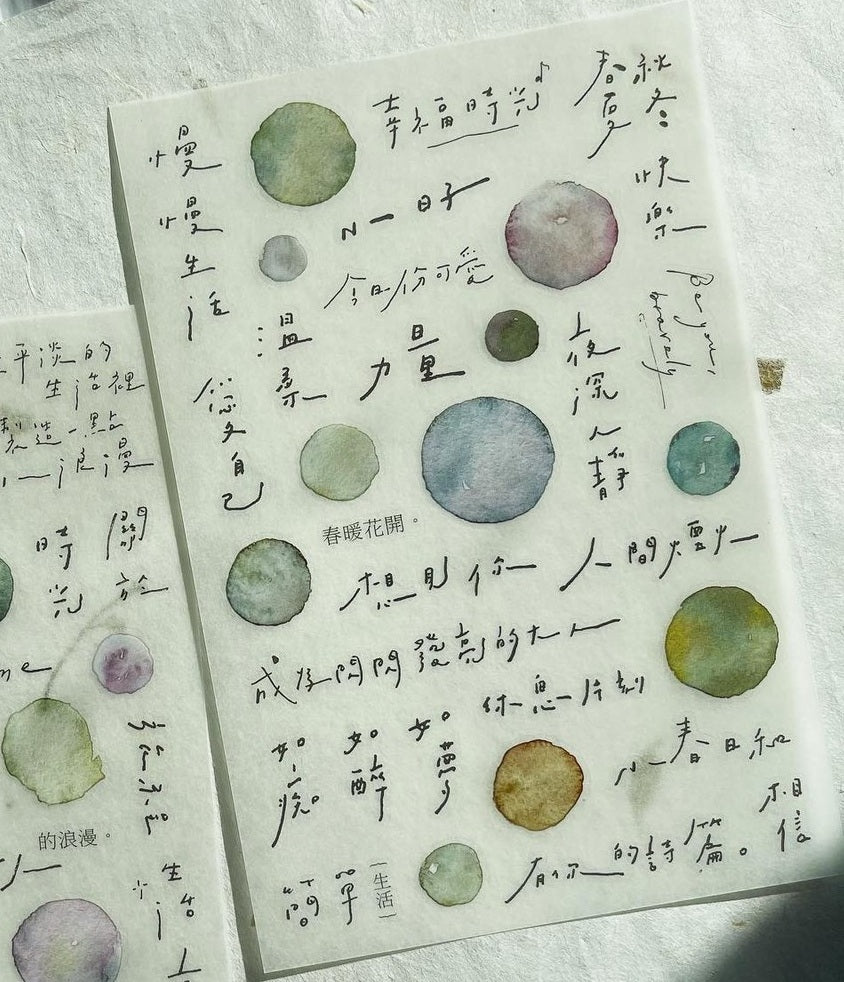 慢慢生活
幸福時光
春夏秋冬
快樂
小日子
今日份可愛
Be you,
bravely
溫柔
力量
夜深人靜
自己
春暖花開。
想見你
人間煙火
成為閃閃發亮的大人
休息片刻
如痴
如醉
如夢
小春日和
相信
有你的詩篇。
簡單
生活
平淡的
生活裡
製造一點
浪漫
關於
時光
me
的浪漫。
生